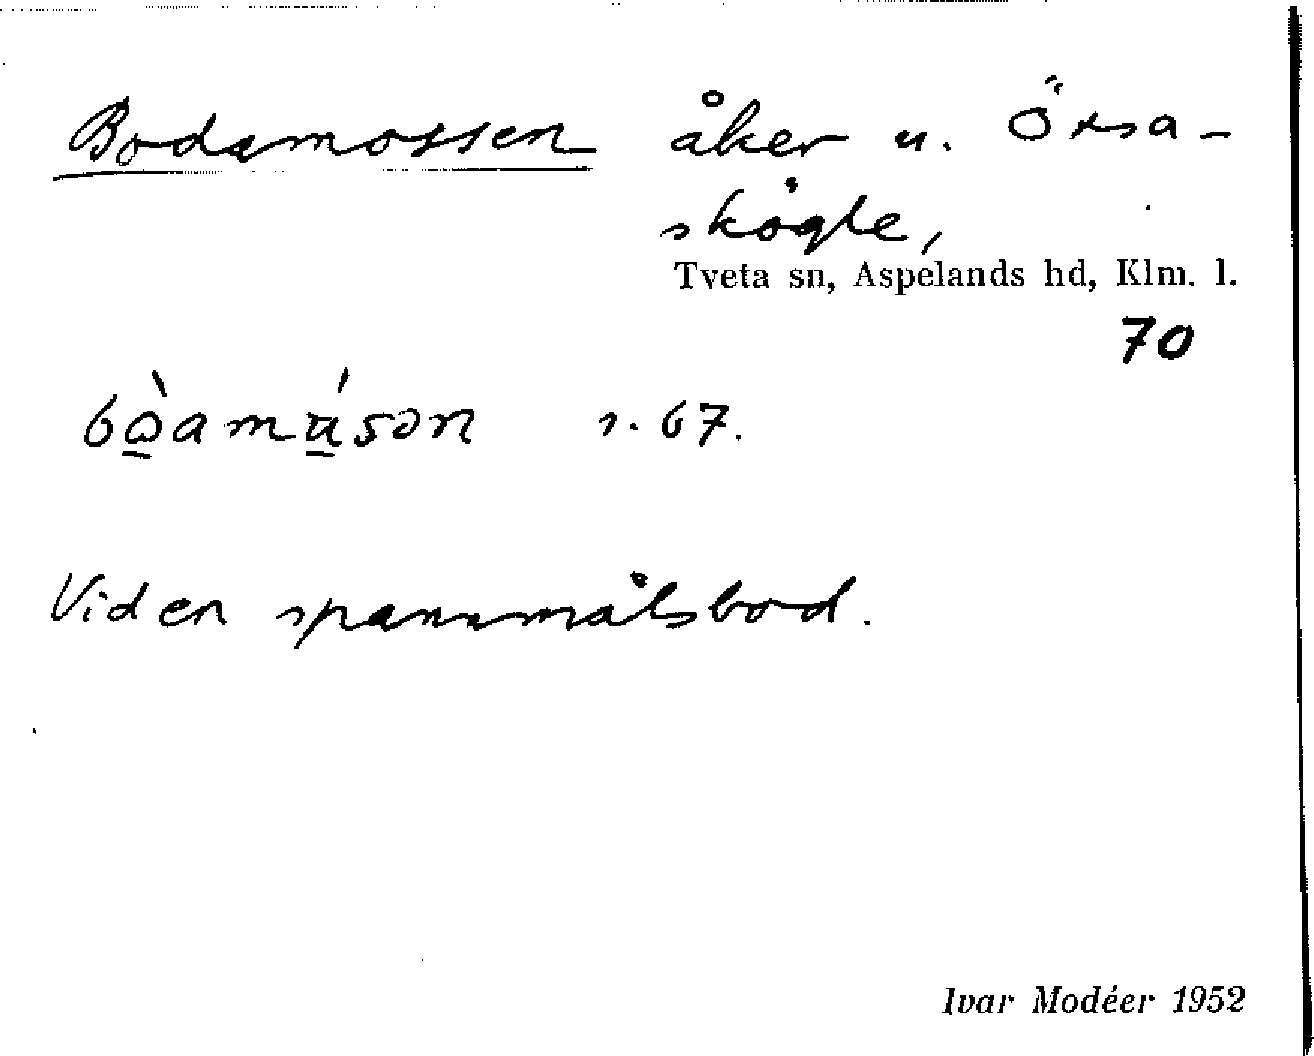 Bodamossen åker u. Öxsa-
skögle,
Tveta sn, Aspelands hd, Klm. l.
70
s. 67.
Vid en spannmålsbod.
Ivar Modéer 1952